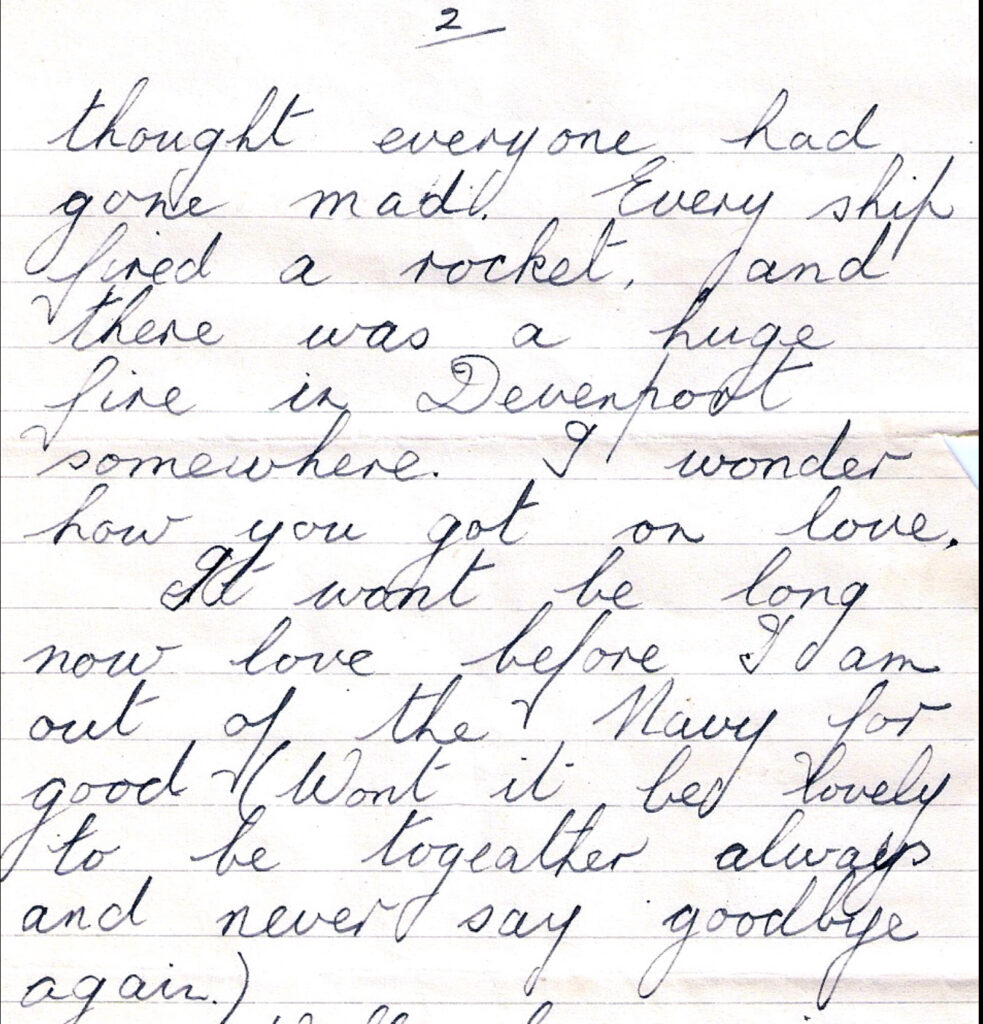 2
thought everyone had
gone mad. Every ship
fired a rocket, and
there was a huge
fire in Devenport
somewhere. I wonder
how you got on love.
It wont be long
now love before I am
out of the Navy for
good (Wont it be lovely
to be togeather always
and never say goodbye
again.)